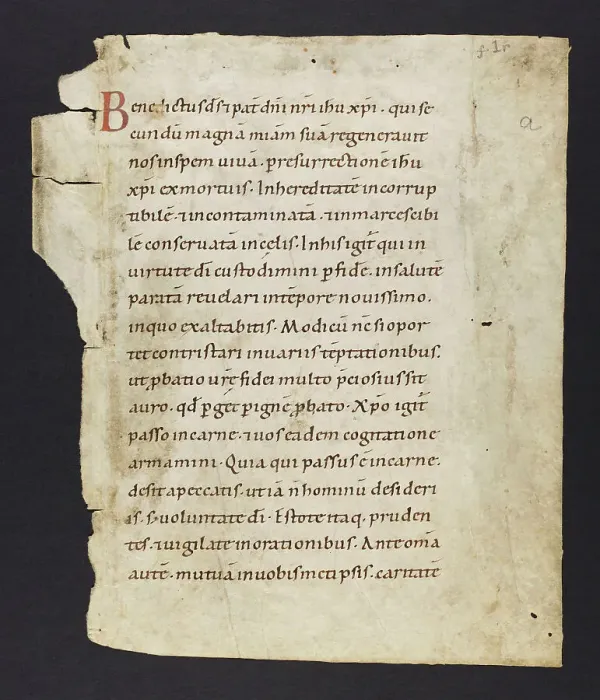 f. 1r
a
Benedictus ds ⁊ pat dni nri ihu xpi · qui se
cundū magnā miam suā regeneravit
nos in spem vivā · p resurrectionē ihu
xpi ex mortuis · In hereditatē incorrup
tibilē · ⁊ incontaminatā · ⁊ inmarcescibi
lē conservatā in celis · In his igit qui in
virtute di custodimini p fidē · in salutē
paratā revelari in tēpore novissimo ·
in quo exaltabitis · Modicū nc si opor
tet contristari in variis tēptationibus ·
ut pbatio vrē fidei multo pciosius sit
auro · qd p igne pbato · Xpo igit
passo in carne · ⁊ vos eadem cogitatione
armamini · Quia qui passus ē in carne ·
desit a peccatis · ut iā n hominū desideri
is · s voluntate di · Estote itaq · pruden
tes · ⁊ vigilate in orationibus · Ante omia
autē · mutuā in vobismet ipsis · caritatē